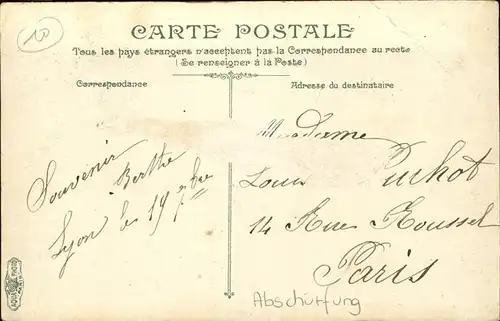 CARTE POSTALE
Tous les pays étrangers n'acceptent pas la Correspondance au recto
(Se renseigner à la Poste)
Correspondance
Adresse du destinataire
Souvenir
Berthe
Lyon le 19 7bre
Madame
Louis
14 Rue Roussel
Paris
Abschürfung